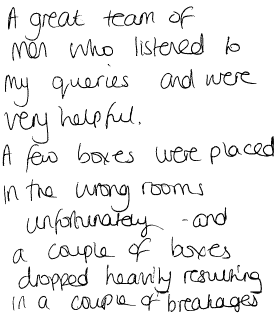 A great team of
men who listened to
my queries and were
very helpful.
A few boxes were placed
in the wrong rooms
unfortunately - and
a couple of boxes
dropped heavily resulting
in a couple of breakages